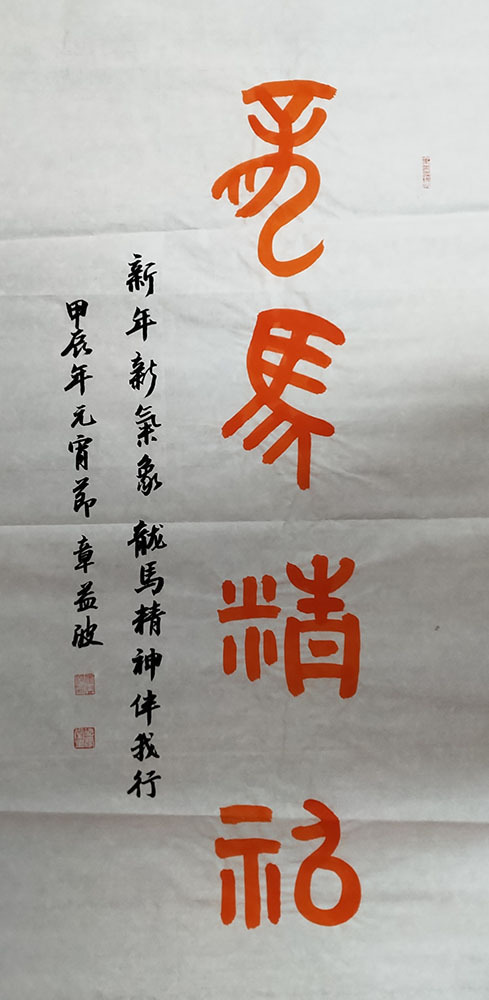 龍馬精神
新年新氣象 龍馬精神伴我行
甲辰年元宵節 章益波